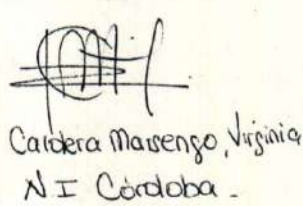 Caldera Marsengo, Virginia
N I Córdoba.